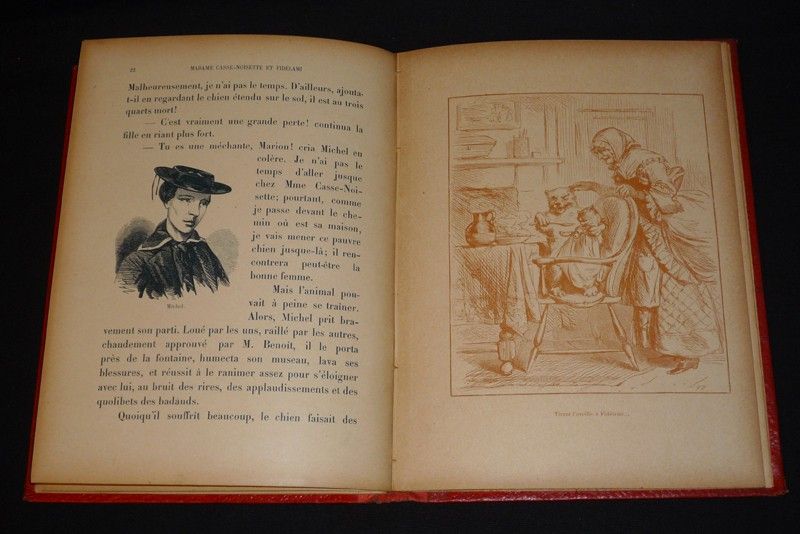 22
MADAME CASSE-NOISETTE ET FIDÉLAMI
Malheureusement, je n'ai pas le temps. D'ailleurs, ajouta-
t-il en regardant le chien étendu sur le sol, il est au trois
quarts mort!
— C'est vraiment une grande perte! continua la
fille en riant plus fort.
— Tu es une méchante, Marion! cria Michel en
colère. Je n'ai pas le
temps d'aller jusque
chez Mme Casse-Noi-
sette; pourtant, comme
je passe devant le che-
min où est sa maison,
je vais mener ce pauvre
chien jusque-là; il ren-
contrera peut-être la
bonne femme.
Mais l'animal pou-
vait à peine se traîner.
Alors, Michel prit bra-
vement son parti. Loué par les uns, raillé par les autres,
chaudement approuvé par M. Benoit, il le porta
près de la fontaine, humecta son museau, lava ses
blessures, et réussit à le ranimer assez pour s'éloigner
avec lui, au bruit des rires, des applaudissements et des
quolibets des badauds.
Quoiqu'il souffrît beaucoup, le chien faisait des
Michel.
Tirant l'oreille à Fidélami...